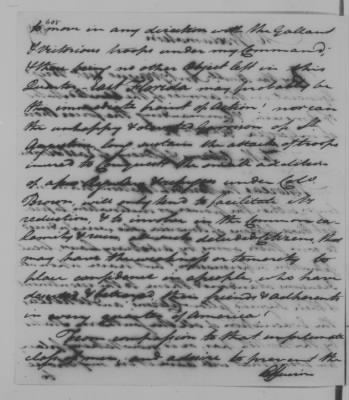 608
to move in any direction with the Gallant
& victorious troops under my Command;
& there being no other Object left in this
Quarter, East Florida may probably be
the immediate point of Action! nor can
the unhappy & Garrison of St.
Augustine long sustain the attacks of troops
inured to Conquest; the small addition
of a few & refugees under Colo.
Brown, will only tend to facilitate its
reduction, & to involve in the Common ca-
lamity & ruin, those deluded Citizens, that
may have the weakness or temerity to
place confidence in a people who have
deceived & betrayed their friends & adherents
in every quarter of America!
From compassion to that unfortunate
class of men, and a desire to prevent the